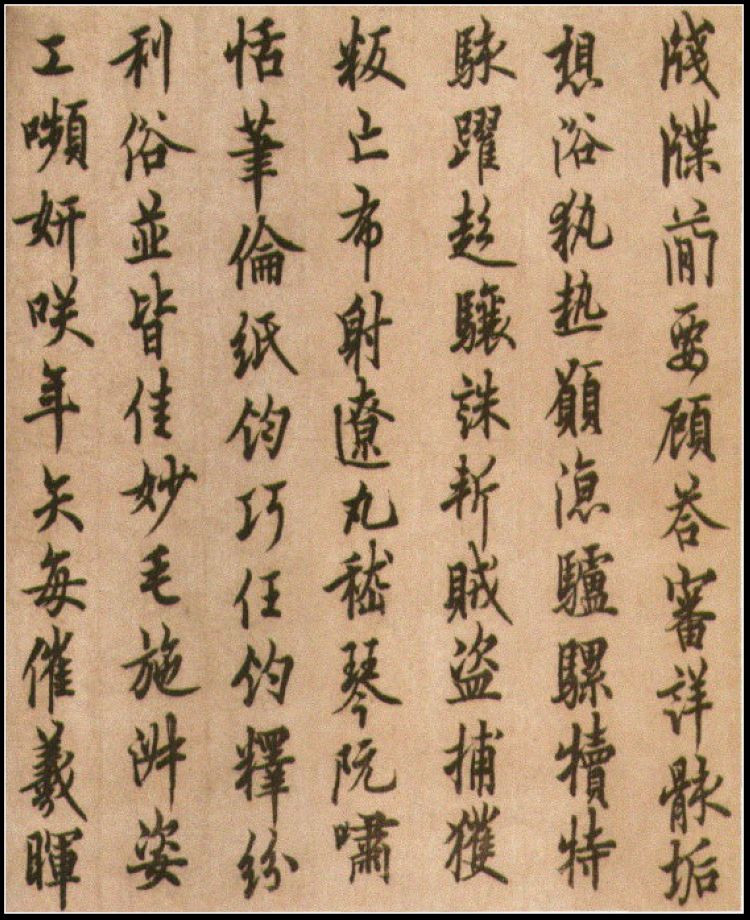 牋牒簡要顧荅審詳骸垢
想浴執熱願涼驢騾犢特
駭躍超驤誅斬賊盜捕獲
叛亡布射遼丸嵇琴阮嘯
恬筆倫紙鈞巧任釣釋紛
利俗並皆佳妙毛施淑姿
工嚬妍咲年矢每催羲暉